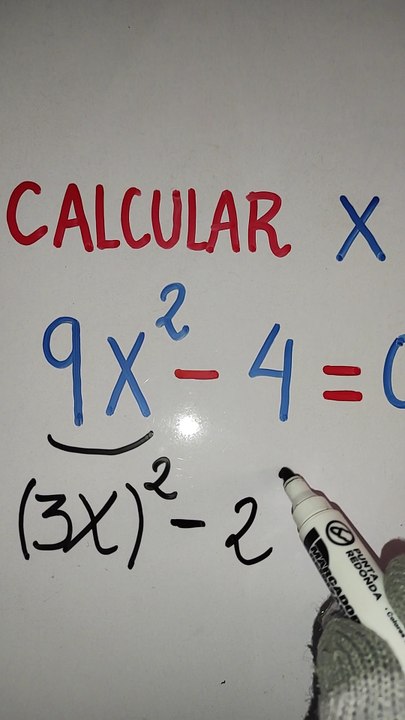 CALCULAR X
9X² - 4 =
(3X)² - 2
PUNTA
REDONDA
MARCADOR